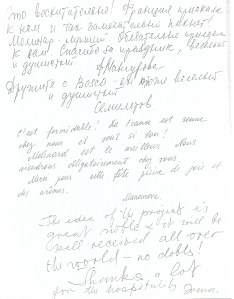 это восхитительно! Франция приехала
к нам и так замечательно пахнет!
Молинар - лучший. Обязательно приедем
к вам. Спасибо за праздник, веселый
и душистый
Дружите с Bosco - он тоже веселый
и душистый
C'est formidable! La France est venue
chez nous et sent si bon!
Molinard est le meilleur. Nous
viendrons obligatoirement chez vous.
Merci pour cette fête pleine de joie et
des arômes.
The idea of the project is
great, noble & it will be
well received all over
the world - no dobts!
Thanks a lot
for the hospitality